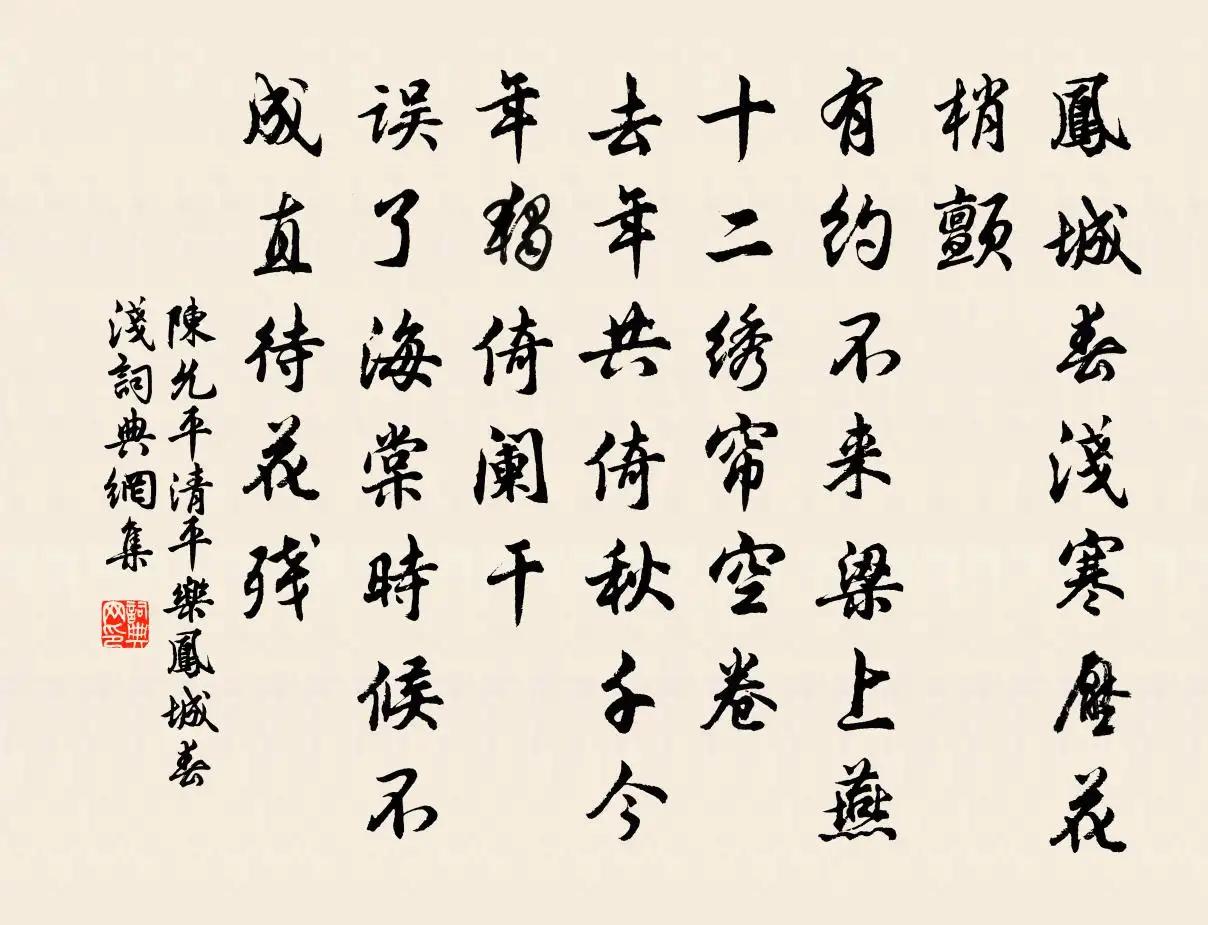 鳳城春淺寒壓花
梢顫
有约不来梁上燕
十二绣帘空卷
去年共倚秋千今
年独倚阑干
误了海棠時候不
成直待花残
陳允平清平樂鳳城春
淺詞典網集
詞典网印